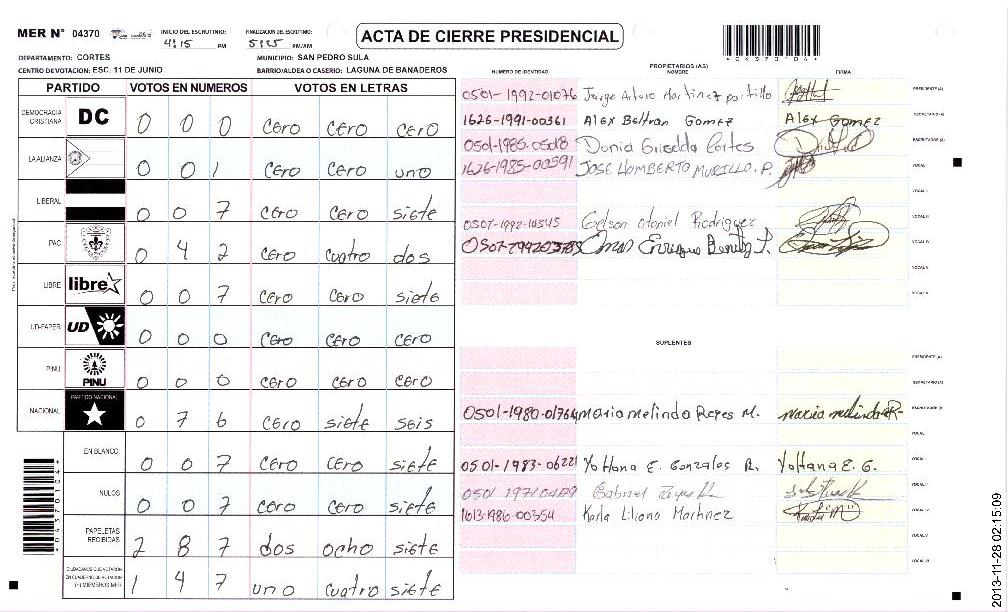 MER N° 04370 INICIO DEL ESCRUTINIO: 4:15 PM FINALIZACION DEL ESCRUTINIO: 5:25 PM/AM ACTA DE CIERRE PRESIDENCIAL
*04370104*
DEPARTAMENTO: CORTES MUNICIPIO: SAN PEDRO SULA
CENTRO DE VOTACION: ESC. 11 DE JUNIO BARRIO/ALDEA O CASERIO: LAGUNA DE BANADEROS
PARTIDO VOTOS EN NUMEROS VOTOS EN LETRAS
DEMOCRACIA CRISTIANA DC 0 0 0 cero cero cero
LA ALIANZA 0 0 1 cero cero uno
LIBERAL 0 0 7 cero cero siete
PAC 0 4 2 cero cuatro dos
LIBRE libre 0 0 7 cero cero siete
UD-FAPER UD 0 0 0 cero cero cero
PINU PINU 0 0 0 cero cero cero
NACIONAL PARTIDO NACIONAL 0 7 6 cero siete seis
EN BLANCO 0 0 7 cero cero siete
NULOS 0 0 7 cero cero siete
PAPELETAS RECIBIDAS 2 8 7 dos ocho siete
CIUDADANOS QUE VOTARON EN CUADERNO DE VOTACION (+) MIEMBROS MER 1 4 7 uno cuatro siete
NUMERO DE IDENTIDAD PROPIETARIOS (AS) NOMBRE FIRMA
0501-1992-01076 Jorge Arturo Martinez portillo PRESIDENTE (A)
1626-1991-00361 Alex Beltran Gomez Alex Gomez SECRETARIO (A)
0501-1985-0508 Dunia Griselda Cortes ESCRUTADOR (A)
1626-1985-00591 JOSE HOMBERTO MURILLO. P. VOCAL
VOCAL II
0507-1992-10345 Edson Otoniel Rodriguez VOCAL III
Omar Enrique Benitez VOCAL IV
VOCAL V
VOCAL VI
SUPLENTES
PRESIDENTE (A)
SECRETARIO (A)
0501-1980-01764 Maria Melinda Reyes M. maria melinda R- ESCRUTADOR (A)
VOCAL
0501-1983-06221 Yohana E. Gonzales R. Yohana E. G. VOCAL II
Gabriel Reyes VOCAL III
1613-1986-00354 Karla Liliana Martinez VOCAL IV
VOCAL V
VOCAL VI
*04370104*
2013-11-28 02:15:09